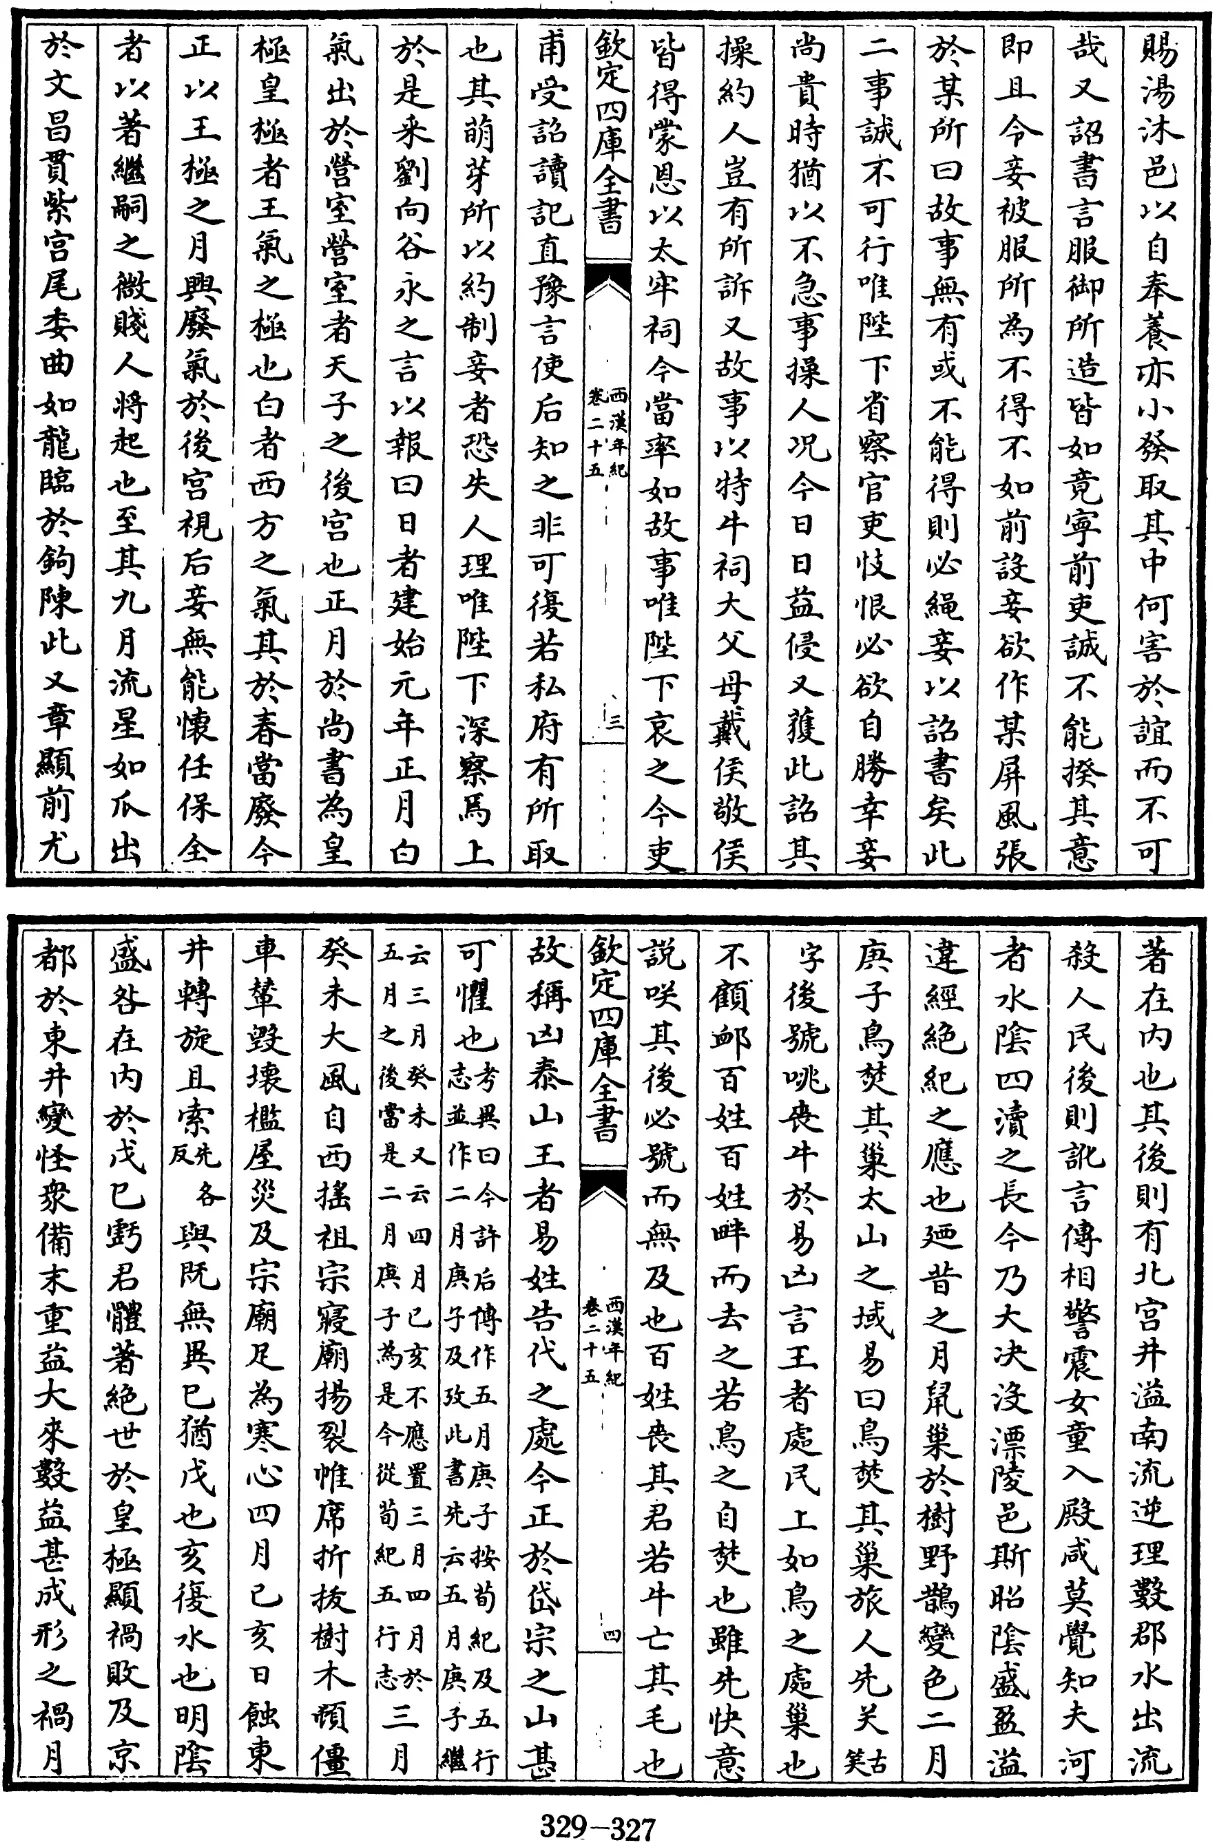 賜湯沐邑以自奉養亦小發取其中何害於誼而不可
哉又詔書言服御所造皆如竟寧前吏誠不能揆其意
即且令妾被服所為不得不如前設妾欲作某屏風張
於某所曰故事無有或不能得則必繩妾以詔書矣此
二事誠不可行唯陛下省察官吏忮恨必欲自勝幸妾
尚貴時猶以不急事操人况今日日益侵又獲此詔其
操約人豈有所訴又故事以特牛祠大父母戴侯敬侯
皆得蒙恩以太牢祠今當率如故事唯陛下哀之今吏
欽定四庫全書
西漢年紀
卷二十五
三
甫受詔讀記直豫言使后知之非可復若私府有所取
也其萌芽所以約制妾者恐失人理唯陛下深察焉上
於是采劉向谷永之言以報曰日者建始元年正月白
氣出於營室營室者天子之後宫也正月於尚書為皇
極皇極者王氣之極也白者西方之氣其於春當廢今
正以王極之月興廢氣於後宫視后妾無能懷任保全
者以著繼嗣之微賤人將起也至其九月流星如瓜出
於文昌貫紫宫尾委曲如龍臨於鉤陳此又章顯前尤
著在内也其後則有北宫井溢南流逆理數郡水出流
殺人民後則訛言傳相警震女童入殿咸莫覺知夫河
者水陰四瀆之長今乃大决沒漂陵邑斯昭陰盛盈溢
違經絶紀之應也廼昔之月鼠巢於樹野鵲變色二月
庚子鳥焚其巢太山之域易曰鳥焚其巢旅人先关古笑
字後號咷喪牛於易凶言王者處民上如鳥之處巢也
不顧䘏百姓百姓畔而去之若鳥之自焚也雖先快意
説咲其後必號而無及也百姓喪其君若牛亡其毛也
欽定四庫全書
西漢年紀
卷二十五
四
故稱凶泰山王者易姓告代之處今正於岱宗之山甚
可懼也考異曰今許后傳作五月庚子按荀紀及五行
志並作二月庚子及攷此書先云五月庚子繼
云三月癸未又云四月已亥不應置三月四月於
五月之後當是二月庚子為是今從荀紀五行志三月
癸未大風自西搖祖宗寢廟揚裂帷席折拔樹木頓僵
車輦毀壞檻屋災及宗廟足為寒心四月已亥日蝕東
井轉旋且索先各反與既無異已猶戊也亥復水也明陰
盛咎在内於戊已虧君體著絶世於皇極顯禍敗及京
都於東井變怪衆備末重益大來數益甚成形之禍月
329-327